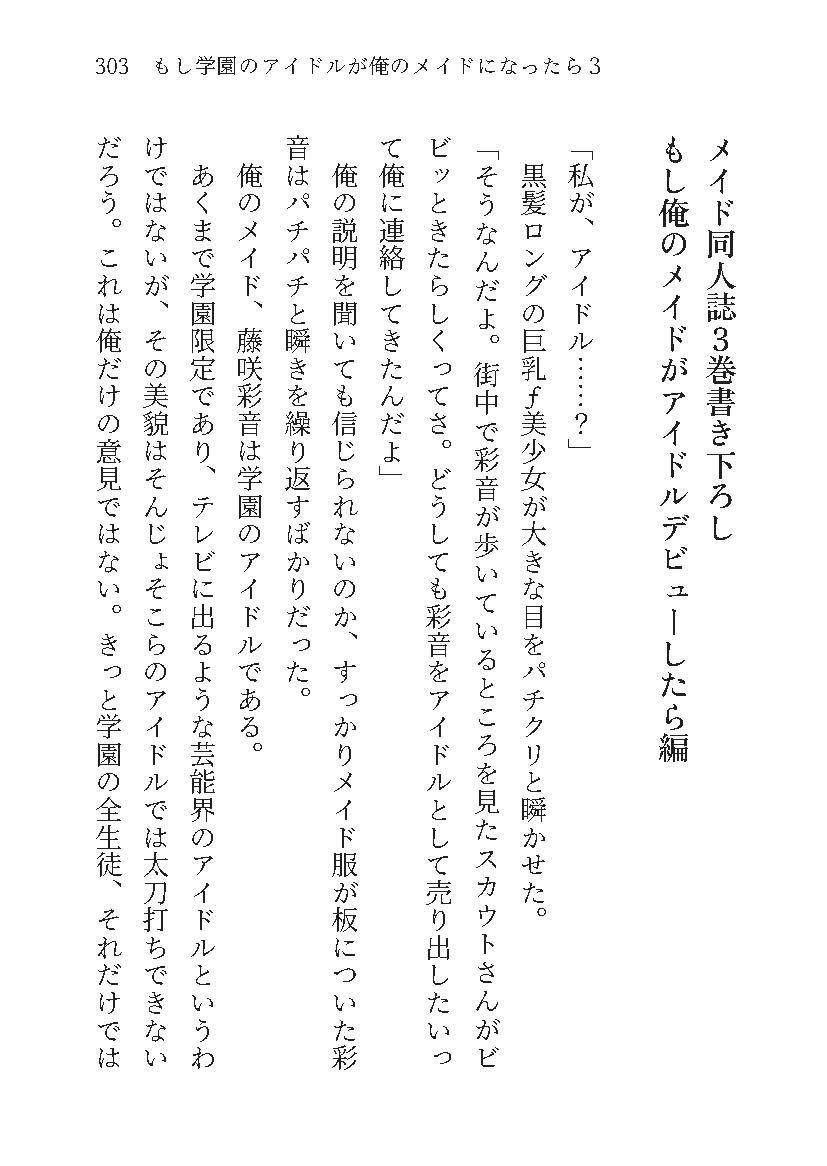 303 もし学園のアイドルが俺のメイドになったら３
メイド同人誌３巻書き下ろし
もし俺のメイドがアイドルデビューしたら編
「私が、アイドル……？」
　黒髪ロングの巨乳ｆ美少女が大きな目をパチクリと瞬かせた。
「そうなんだよ。街中で彩音が歩いているところを見たスカウトさんがビ
ビッときたらしくってさ。どうしても彩音をアイドルとして売り出したいっ
て俺に連絡してきたんだよ」
　俺の説明を聞いても信じられないのか、すっかりメイド服が板についた彩
音はパチパチと瞬きを繰り返すばかりだった。
　俺のメイド、藤咲彩音は学園のアイドルである。
　あくまで学園限定であり、テレビに出るような芸能界のアイドルというわ
けではないが、その美貌はそんじょそこらのアイドルでは太刀打ちできない
だろう。これは俺だけの意見ではない。きっと学園の全生徒、それだけでは